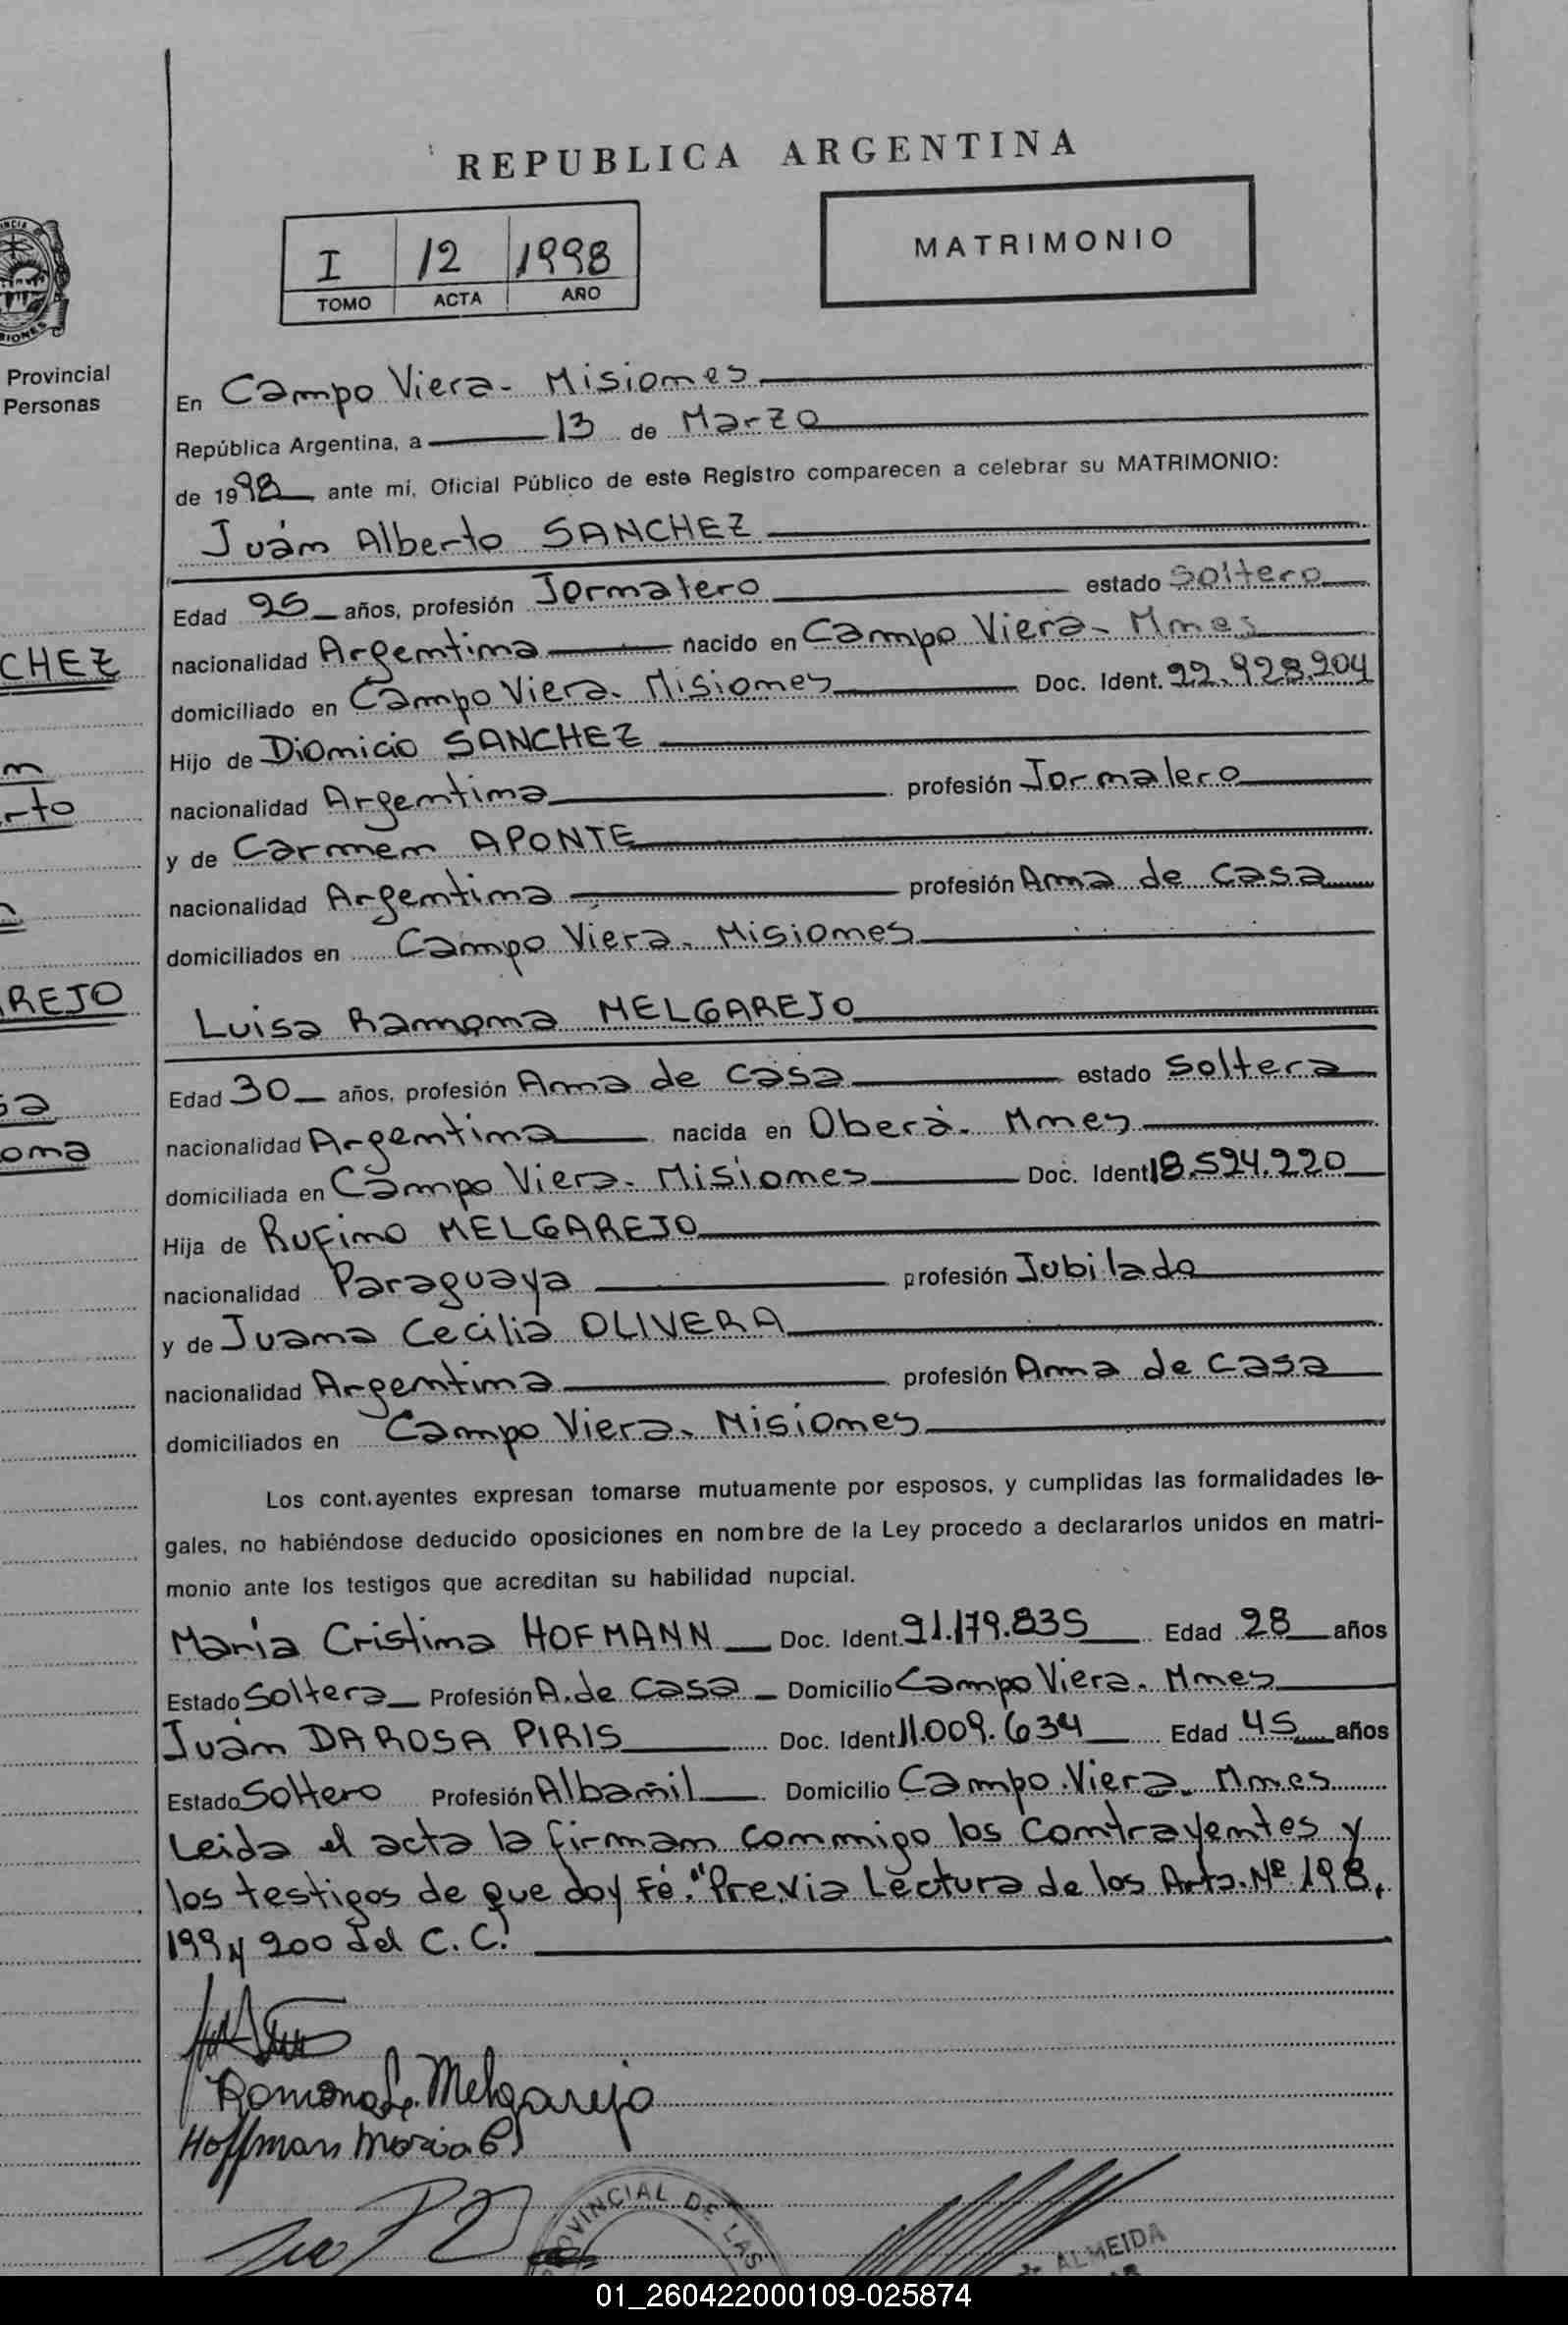 REPUBLICA ARGENTINA
I 12 1998
TOMO ACTA AÑO
MATRIMONIO
Provincial
Personas
En Campo Viera - Misiones
República Argentina, a 13 de Marzo
de 1998 ante mí, Oficial Público de este Registro comparecen a celebrar su MATRIMONIO:
Juán Alberto SANCHEZ
Edad 25 años, profesión Jornalero estado Soltero
nacionalidad Argentina nacido en Campo Viera - Mnes
domiciliado en Campo Viera - Misiones Doc. Ident. 22.928.204
Hijo de Dionicio SANCHEZ
nacionalidad Argentina profesión Jornalero
y de Carmen APONTE
nacionalidad Argentina profesión Ama de Casa
domiciliados en Campo Viera - Misiones
Luisa Ramona MELGAREJO
Edad 30 años, profesión Ama de Casa estado Soltera
nacionalidad Argentina nacida en Oberá - Mnes
domiciliada en Campo Viera - Misiones Doc. Ident 18.524.220
Hija de Rufino MELGAREJO
nacionalidad Paraguaya profesión Jubilado
y de Juana Cecilia OLIVERA
nacionalidad Argentina profesión Ama de Casa
domiciliados en Campo Viera - Misiones
Los cont.ayentes expresan tomarse mutuamente por esposos, y cumplidas las formalidades le-
gales, no habiéndose deducido oposiciones en nombre de la Ley procedo a declararlos unidos en matri-
monio ante los testigos que acreditan su habilidad nupcial.
María Cristina HOFMANN Doc. Ident. 21.179.835 Edad 28 años
Estado Soltera Profesión A. de Casa Domicilio Campo Viera - Mnes
Juán DA ROSA PIRIS Doc. Ident 11.009.634 Edad 45 años
Estado Soltero Profesión Albañil Domicilio Campo Viera - Mnes
Leida el acta la firman conmigo los Contrayentes y
los testigos de que doy Fé. "Previa Lectura de los Arts. Nº 198,
199 y 200 del C.C."
Ramona L. Melgarejo
Hoffman Maria C
PROVINCIAL DE LAS
ALMEIDA
CHEZ
n
rto
REJO
sa
ona
01_260422000109-025874